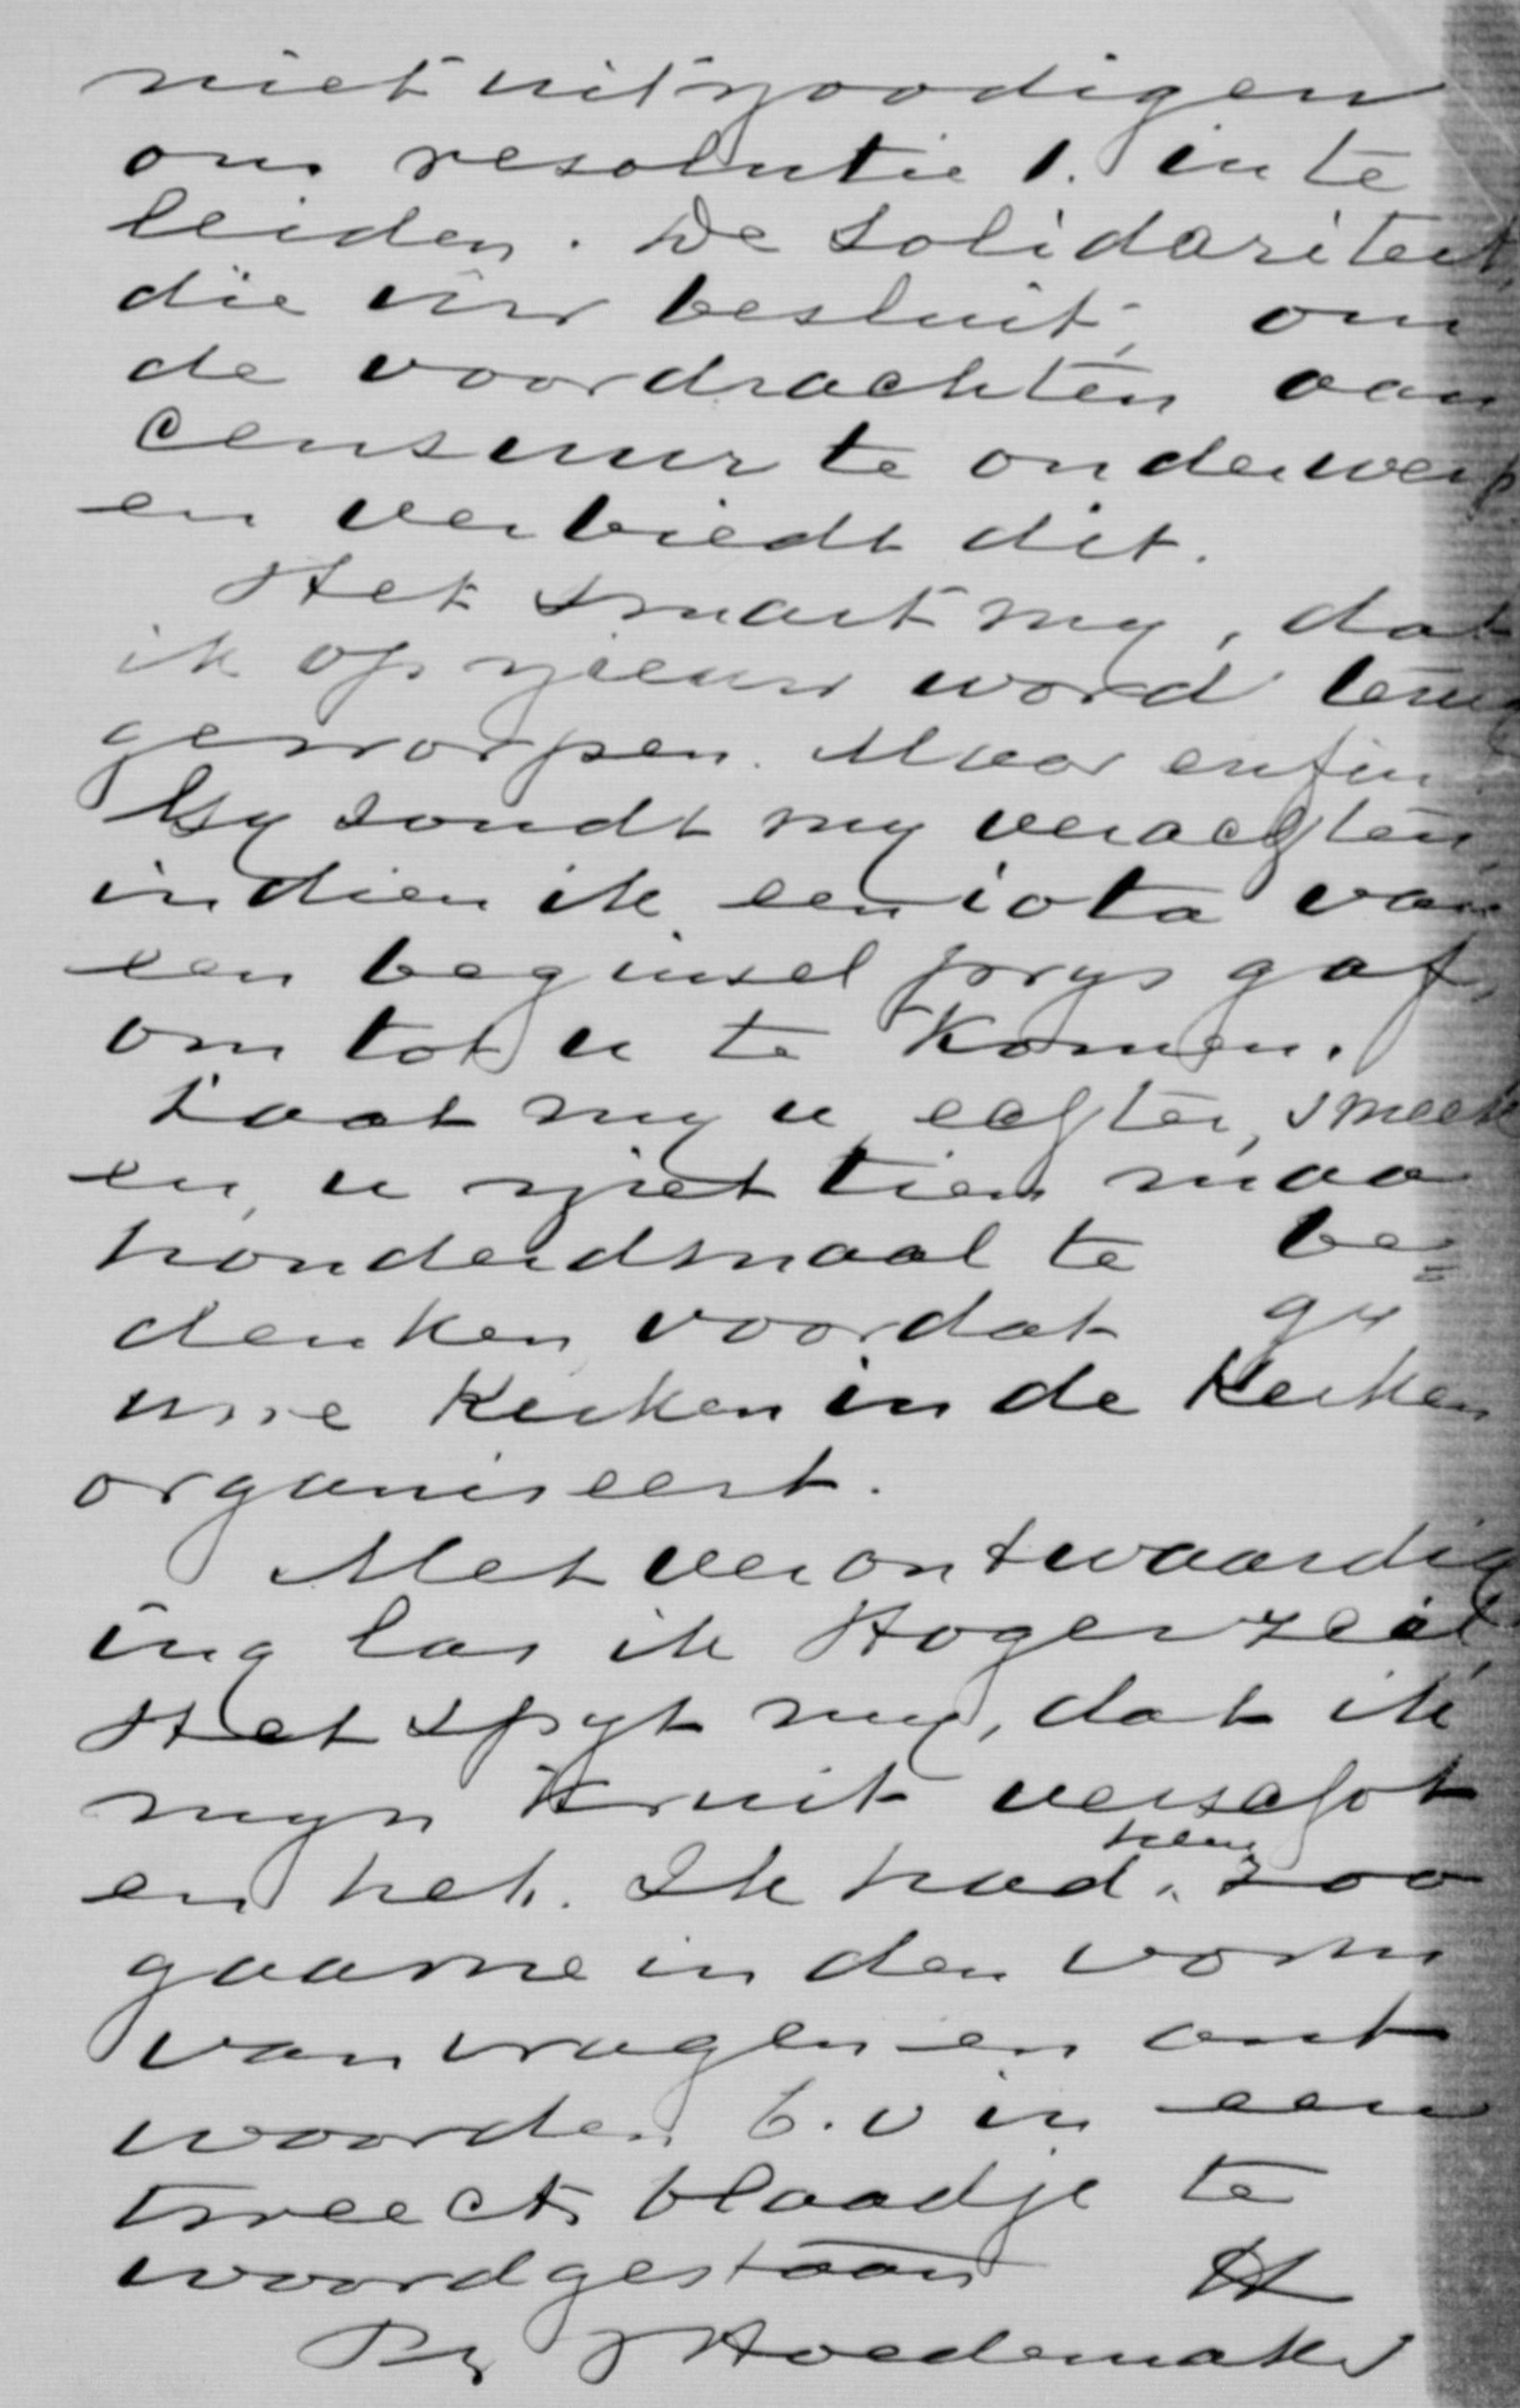 niet uitnoodigen
om resolutie 1. in te
leiden. De Solidariteit,
die uw besluit, om
de voordrachten aan
Censuur te onderwerp
en verbiedt dit.
Het smart my, dat
ik op nieuw word terug
geworpen. Maar enfin
Gy zoudt my verachten,
indien ik een iota van
een beginsel prys gaf,
om tot u te komen.
Laat my u echter, smeek
en, u niet tien maa
honderdmaal te be=
denken voordat gy
uwe Kerken in de Kerken
organiseert.
Met verontwaardig
ing las ik Hogerzeil.
Het spyt my, dat ik
myn kruit verschot
en heb. Ik had zoo
gaarne in den vorm
van vragen en ant
woorden b.v in een
tweects blaadje te
woord gestaan
Ph J Hoedemaker